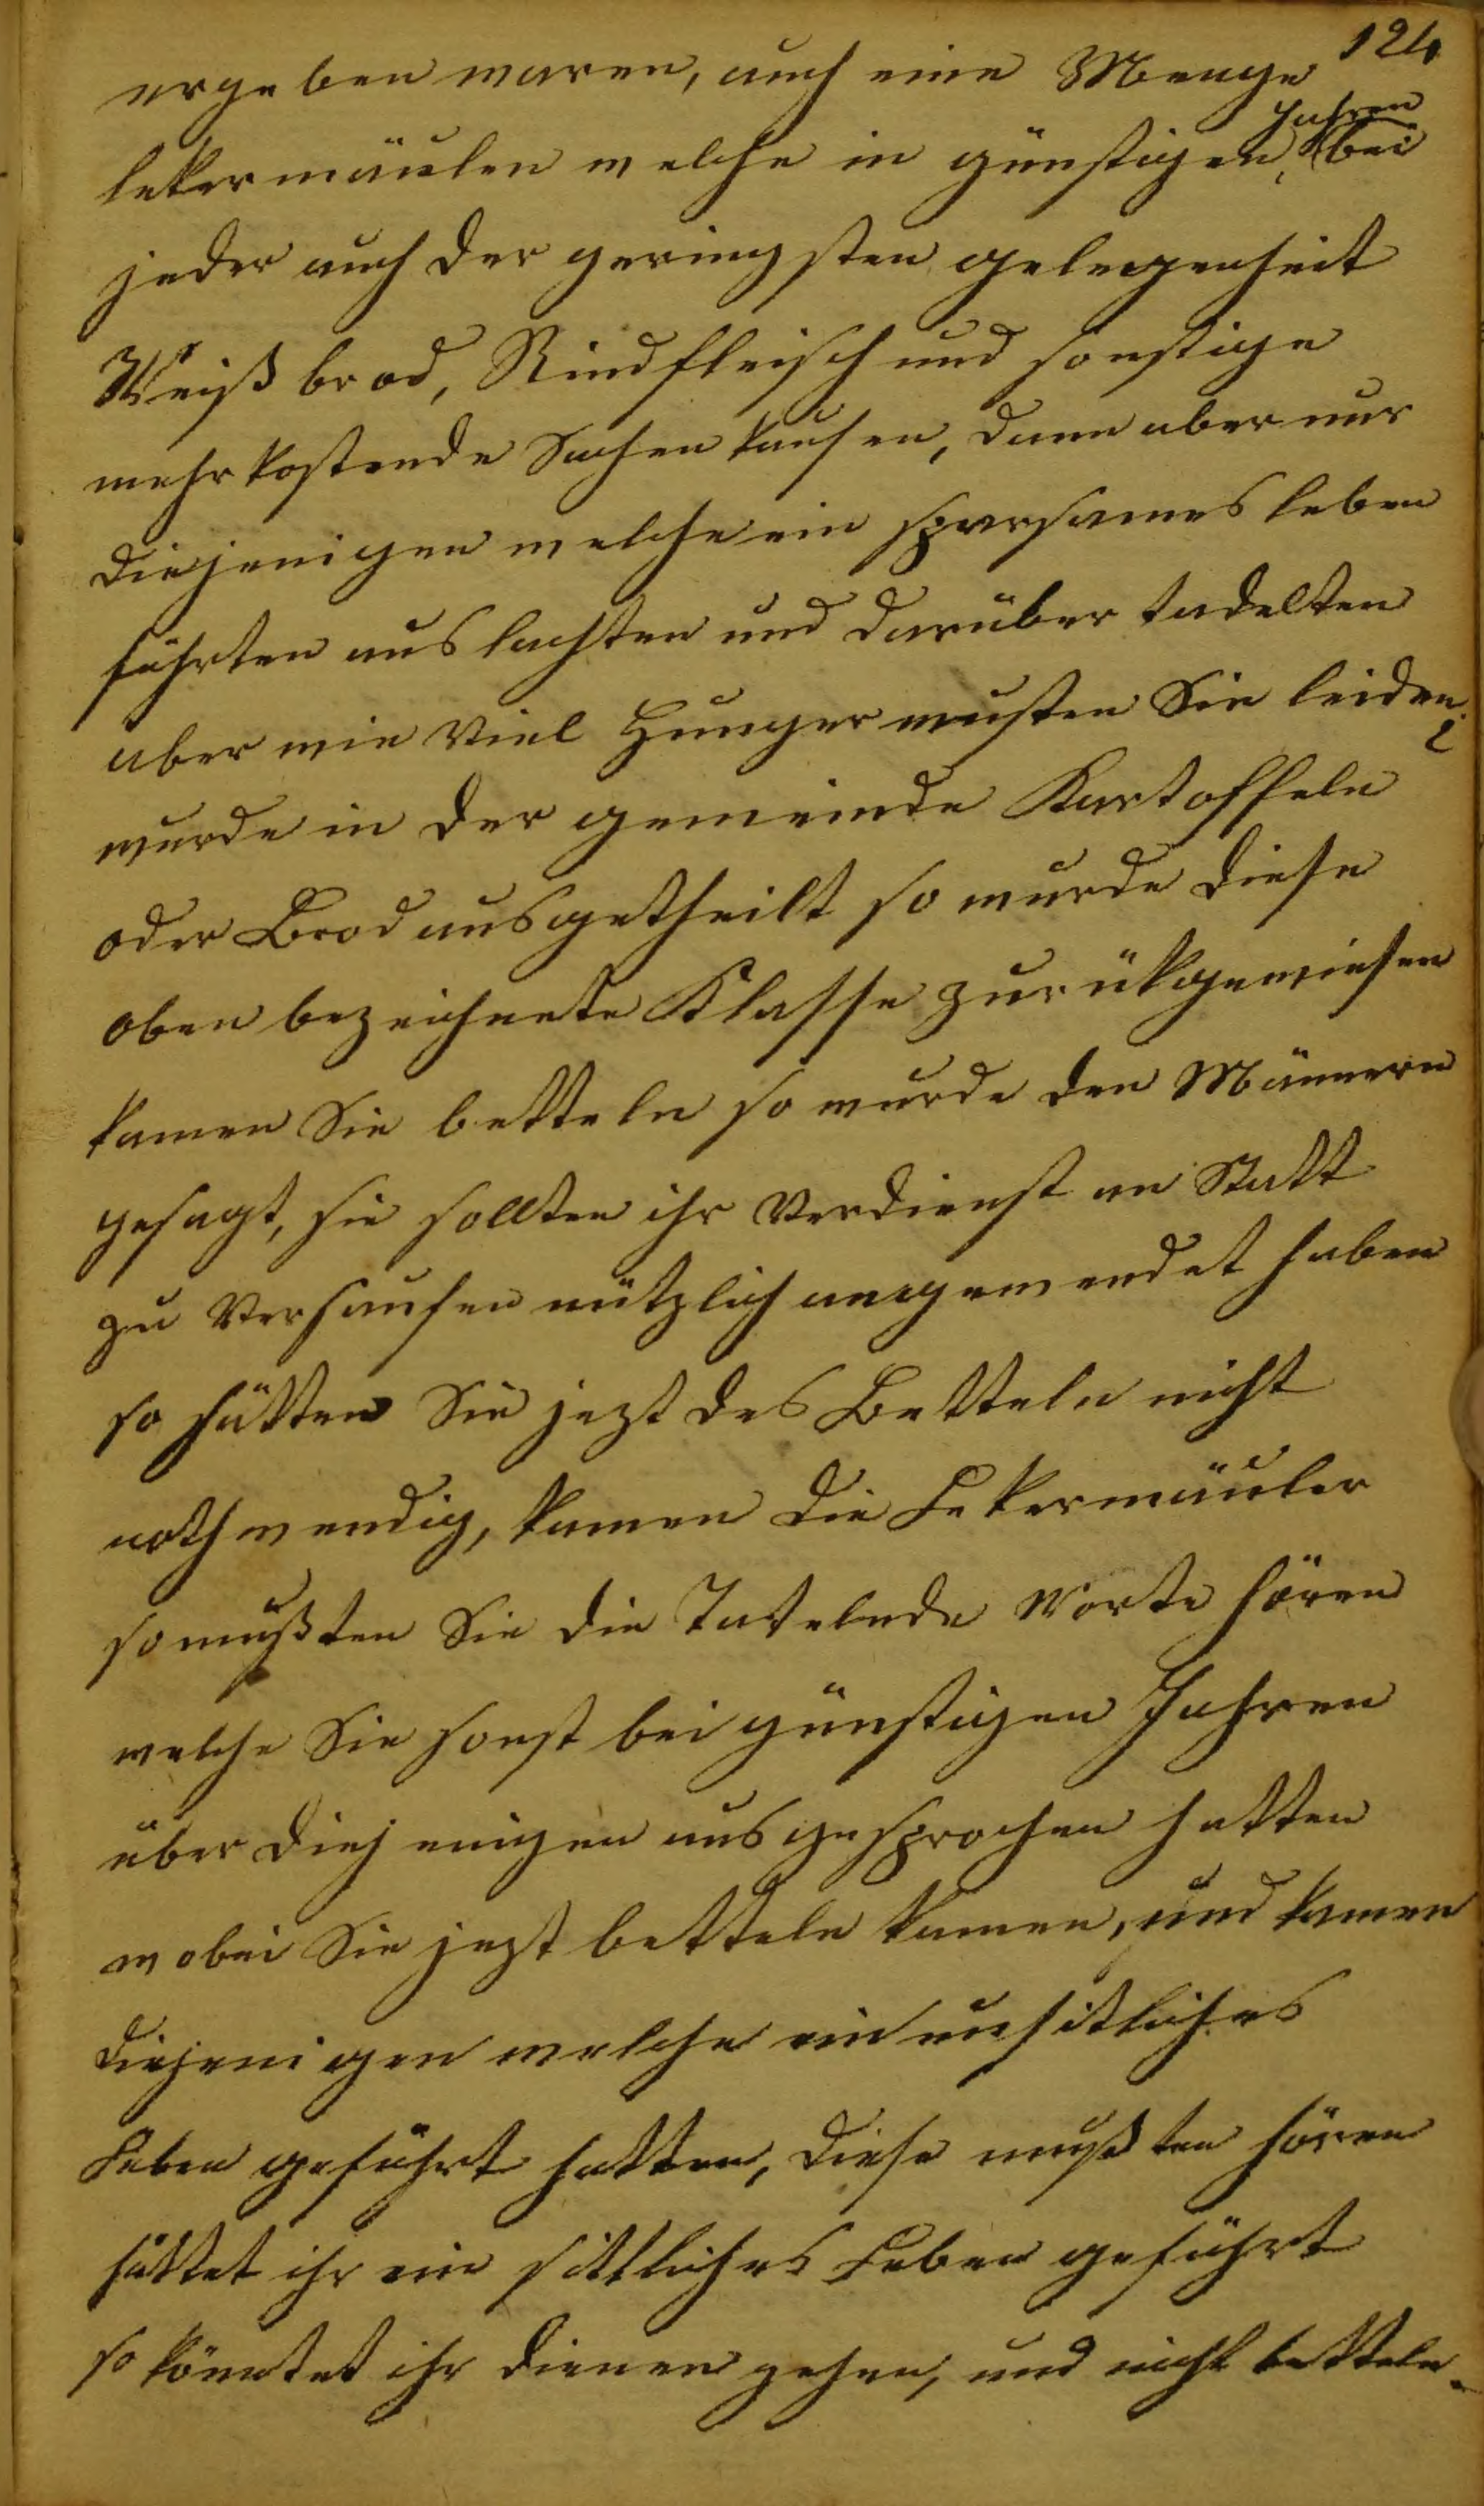 124
ergeben waren, auch eine Menge
lekermäulen welche in günstigen Jahren bei
jeder auch der geringsten gelegenheit
Weißbrod, Rindfleisch und sonstige
mehrkostende Sachen kaufen, dann aber nur
diejenigen welche ein sparsames leben
führten auslachten und darüber tadelten
aber wie Viel Hunger musten Sie leiden?
wurde in der gemeinde Kartoffeln
oder Brod ausgetheilt so wurde diese
oben bezeichnete Klasse zurükgewiesen
kamen Sie betteln so wurde den Männern
gesagt, sie sollten ihr Verdienst an Statt
zu Versaufen nützlich angewendet haben
so hätten Sie jezt des Betteln nicht
nothwendig, kamen die Lekermäuler
so mußten Sie die Tatelnde Worte hören
welche Sie sonst bei günstigen Jahren
über diejenigen ausgesprochen hatten
wobei Sie jezt betteln kamen, und kamen
diejenigen welche ein unsitliches
Leben geführt hatten, diese mußten hören
hättet ihr ein sittliches Leben geführt
so könntet ihr dienen gehen, und nicht betteln.